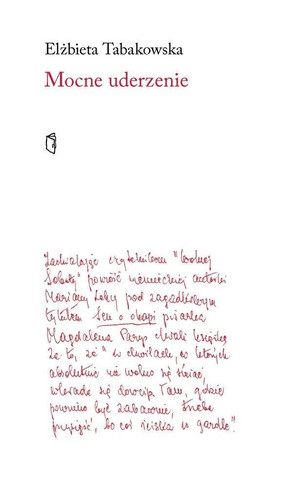 Elżbieta Tabakowska
Mocne uderzenie
Zachwalając czytelnikom "Wolnej
Soboty" powieść niemieckiej autorki
Mariany Leky pod zagadkowym
tytułem Sen o okapi pisarka
Magdalena Parys chwali książkę
za to, że "w chwilach, w których
absolutnie nie wolno się śmiać,
wkrada się dowcip. Tam, gdzie
powinno być zabawnie, trzeba
przyznać, bo coś ściska w gardle."